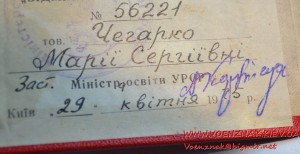 № 56221
тов. Чегарко
Марії Сергіївні
Заст. Міністр освіти УРСР
Київ 29 квітня 1975 р.
WWW.VOENZNAK.KIEV.UA
Voenznak@bigmir.net